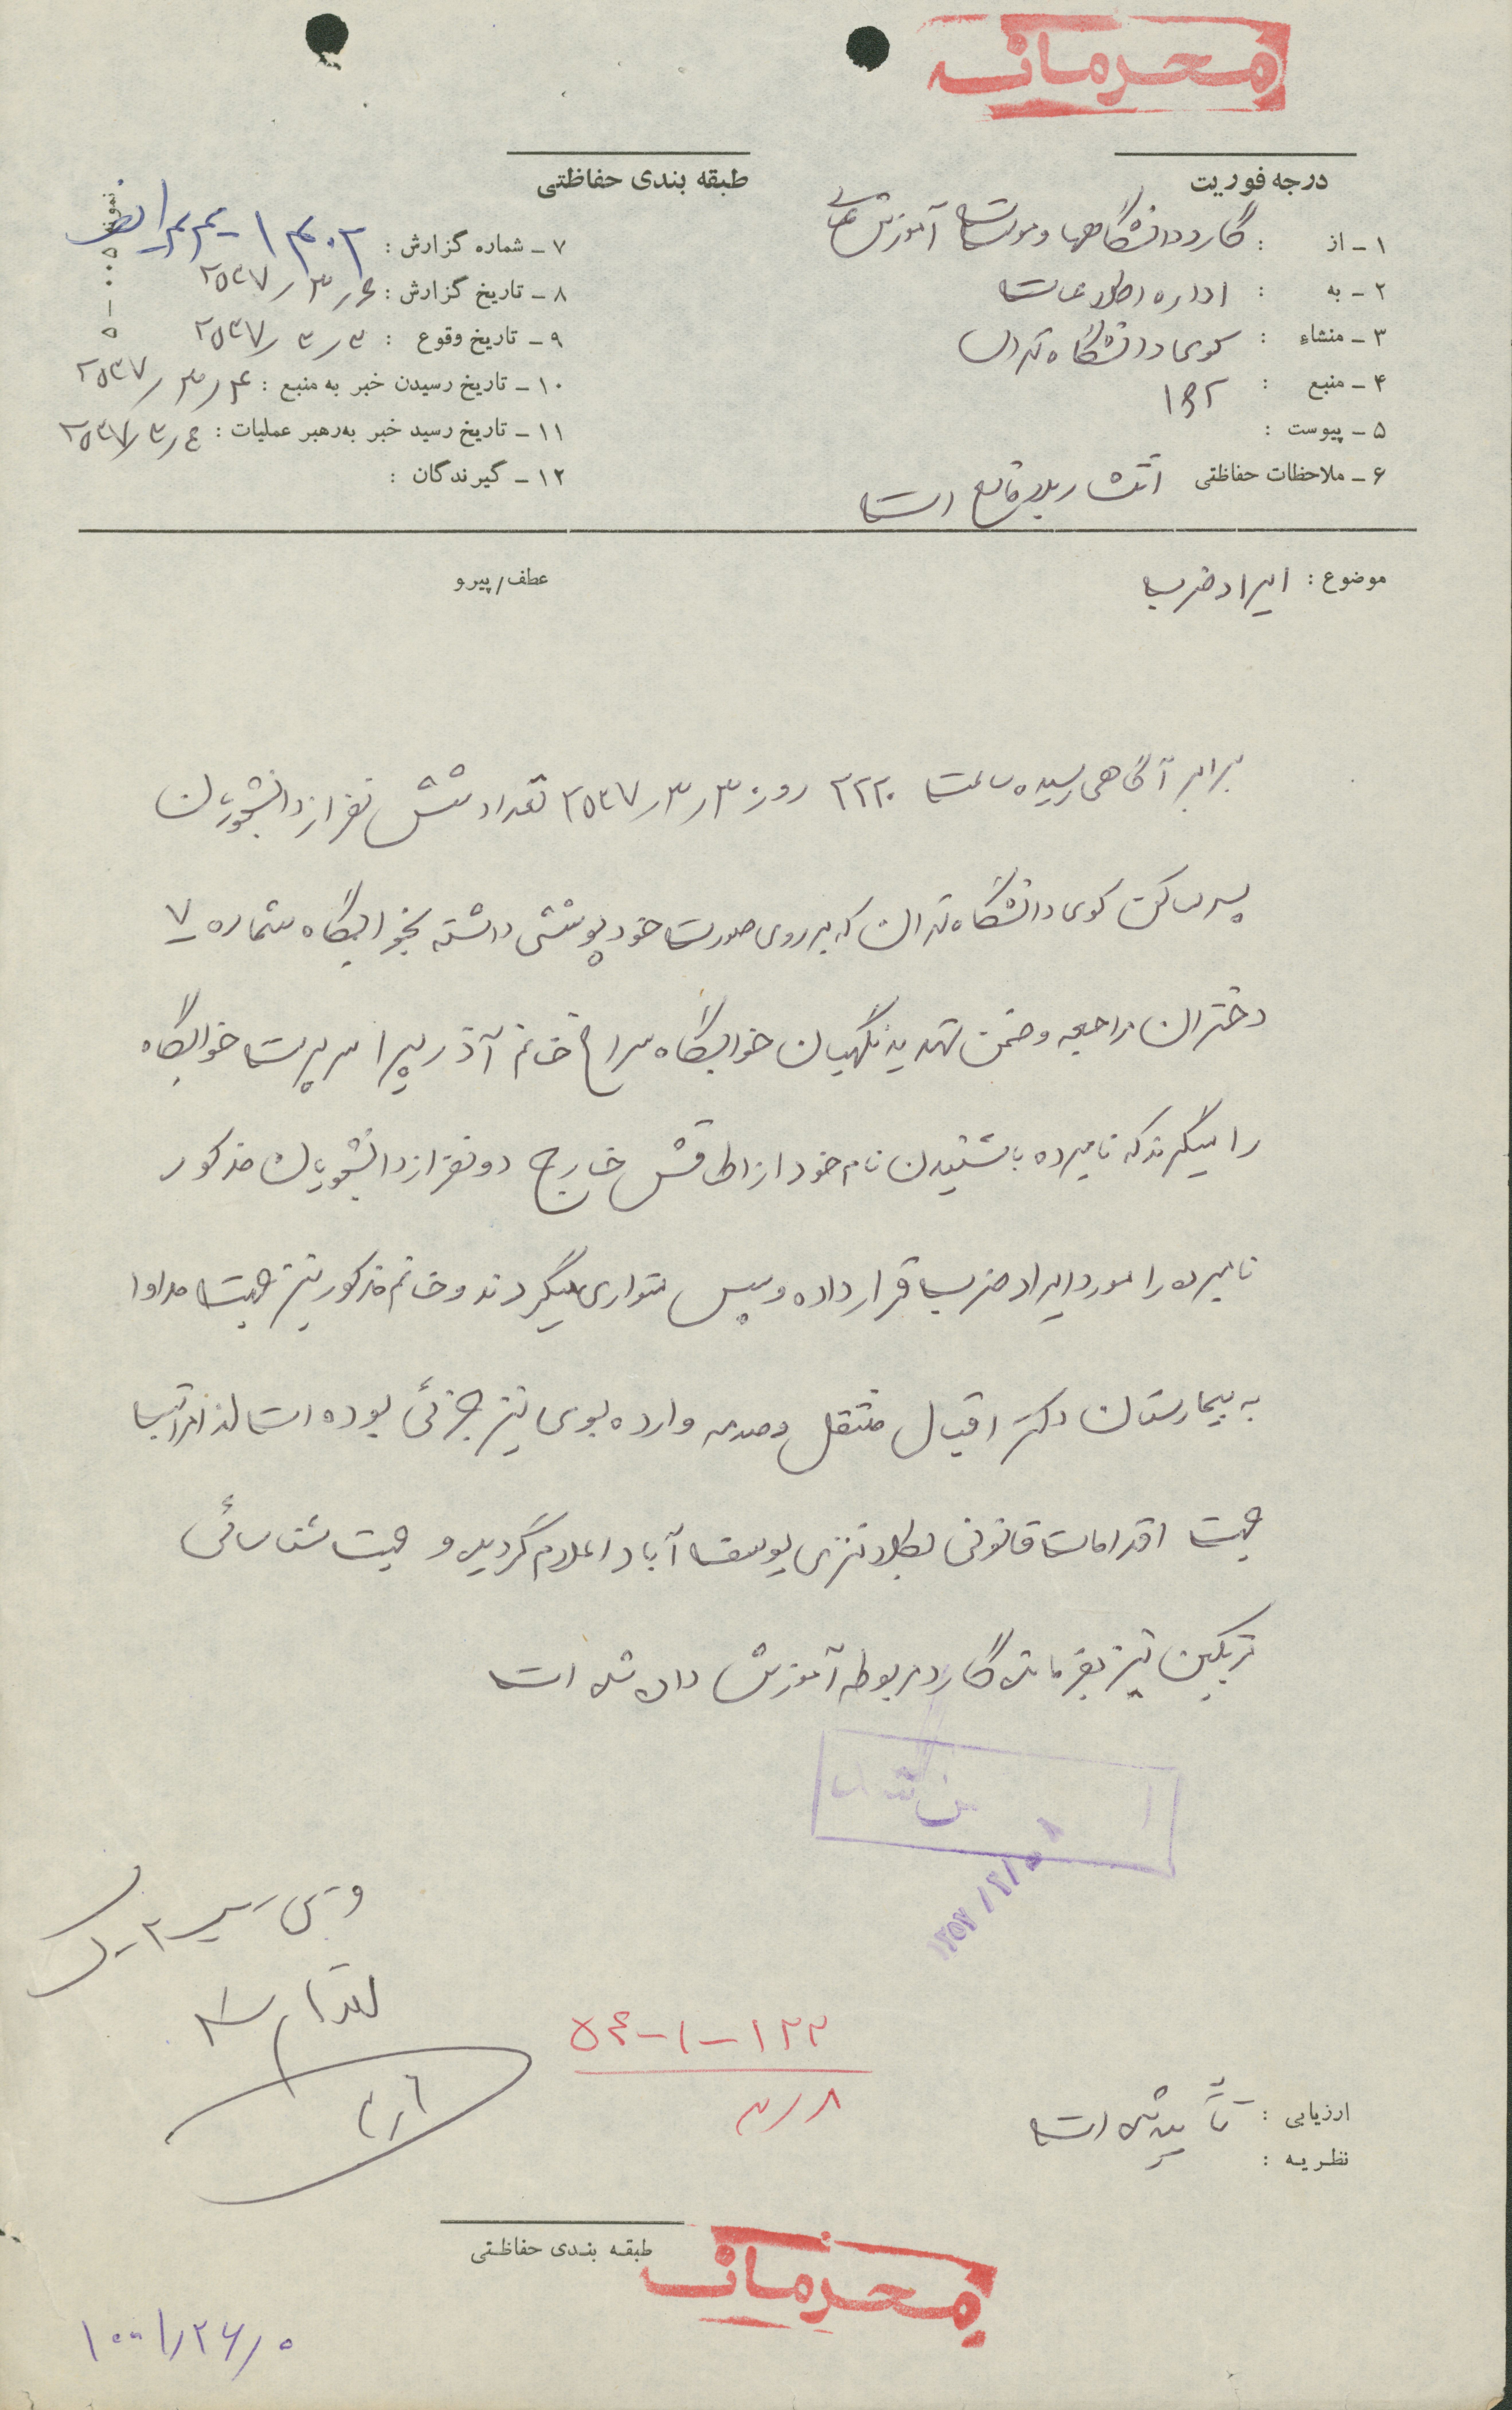 محرمانه
درجه فوریت
طبقه بندی حفاظتی
۱ - از : گارد دانشگاهها و موسسات آموزش عالی
۲ - به : اداره اطلاعات
۳ - منشاء : کوی دانشگاه تهران
۴ - منبع : ۱۶۲
۵ - پیوست :
۶ - ملاحظات حفاظتی انتشار بلامانع است
۷ - شماره گزارش :
۸ - تاریخ گزارش : ۲۵۳۷/۳/۶
۹ - تاریخ وقوع : ۲۵۳۷/۳/۳
۱۰ - تاریخ رسیدن خبر به منبع : ۲۵۳۷/۳/۴
۱۱ - تاریخ رسید خبر به رهبر عملیات : ۲۵۳۷/۳/۴
۱۲ - گیرندگان :
موضوع : ایراد ضرب
عطف/پیرو
برابر آگاهی رسیده ساعت ۲۲۳۰ روز ۲۵۳۷/۳/۳ تعداد شش نفر از دانشجویان
پسر ساکن کوی دانشگاه تهران که بر روی صورت خود پوششی داشته بخوابگاه شماره ۷
دختران مراجعه و ضمن تهدید نگهبان خوابگاه سراغ خانم آذرپیرا سرپرست خوابگاه
را میگیرند که نامبرده با شنیدن نام خود از اطاقش خارج دو نفر از دانشجویان مذکور
نامبرده را مورد ایراد ضرب قرار داده و سپس متواری میگردند و خانم مذکور نیز جهت مداوا
به بیمارستان دکتر اقبال منتقل و صدمه وارده بوی نیز جزئی بوده است لذا مراتب
جهت اقدامات قانونی بکلانتری یوسف آباد اعلام گردیده و جهت شناسائی
مرتکبین نیز بفرمانده گارد مربوطه آموزش داده شده است
۱۲۲-۱-۵۴
۳/۸
ارزیابی : تأیید شده است
نظریه :
طبقه بندی حفاظتی
محرمانه